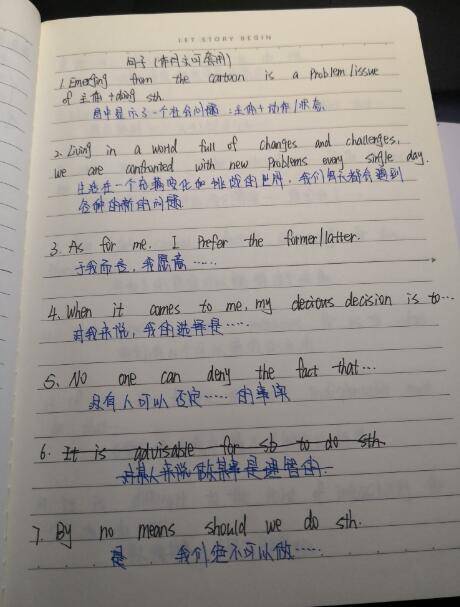 LET STORY BEGIN
句子(作文可套用)
1. Emerging from the cartoon is a problem/issue
of 主体 + doing sth.
图中显示了一个社会问题:主体+动作/状态.
2. Living in a world full of changes and challenges,
we are confronted with new problems every single day.
生活在一个充满变化和挑战的世界,我们每天都会遇到
各种的新的问题
3. As for me, I prefer the former/latter.
于我而言,我愿意……
4. When it comes to me, my decious decision is to…
对我来说,我的选择是……
5. No one can deny the fact that…
没有人可以否定……的事实
6. It is advisable for sb to do sth.
对某人来说做某事是理智的.
7. By no means should we do sth.
是 我们绝不可以做……